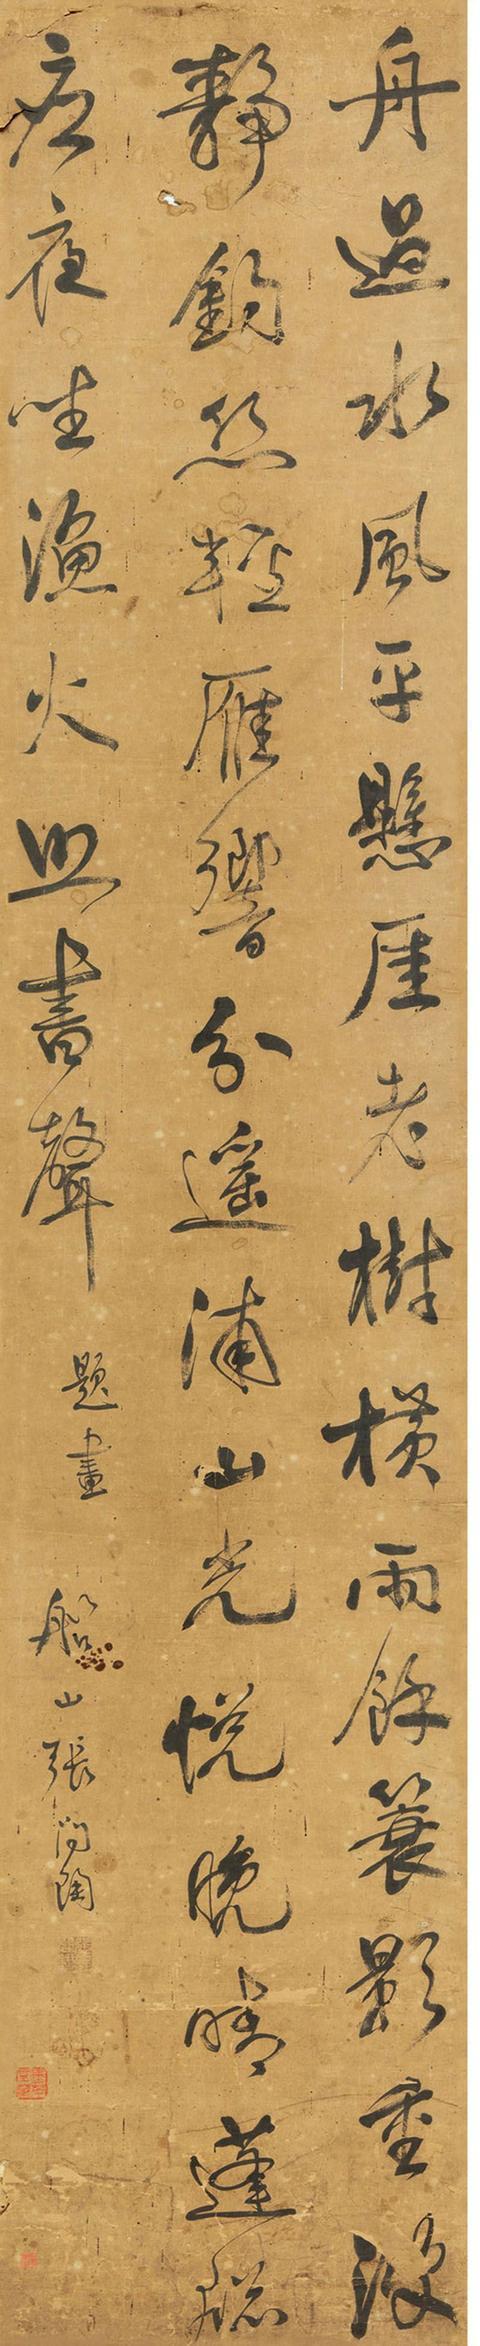 舟過水風平懸厓老樹橫雨餘簑影重波
靜釣絲輕雁響分遥浦山光悦晚晴蓬牎
應夜坐漁火照書聲
題畫
船山張問陶